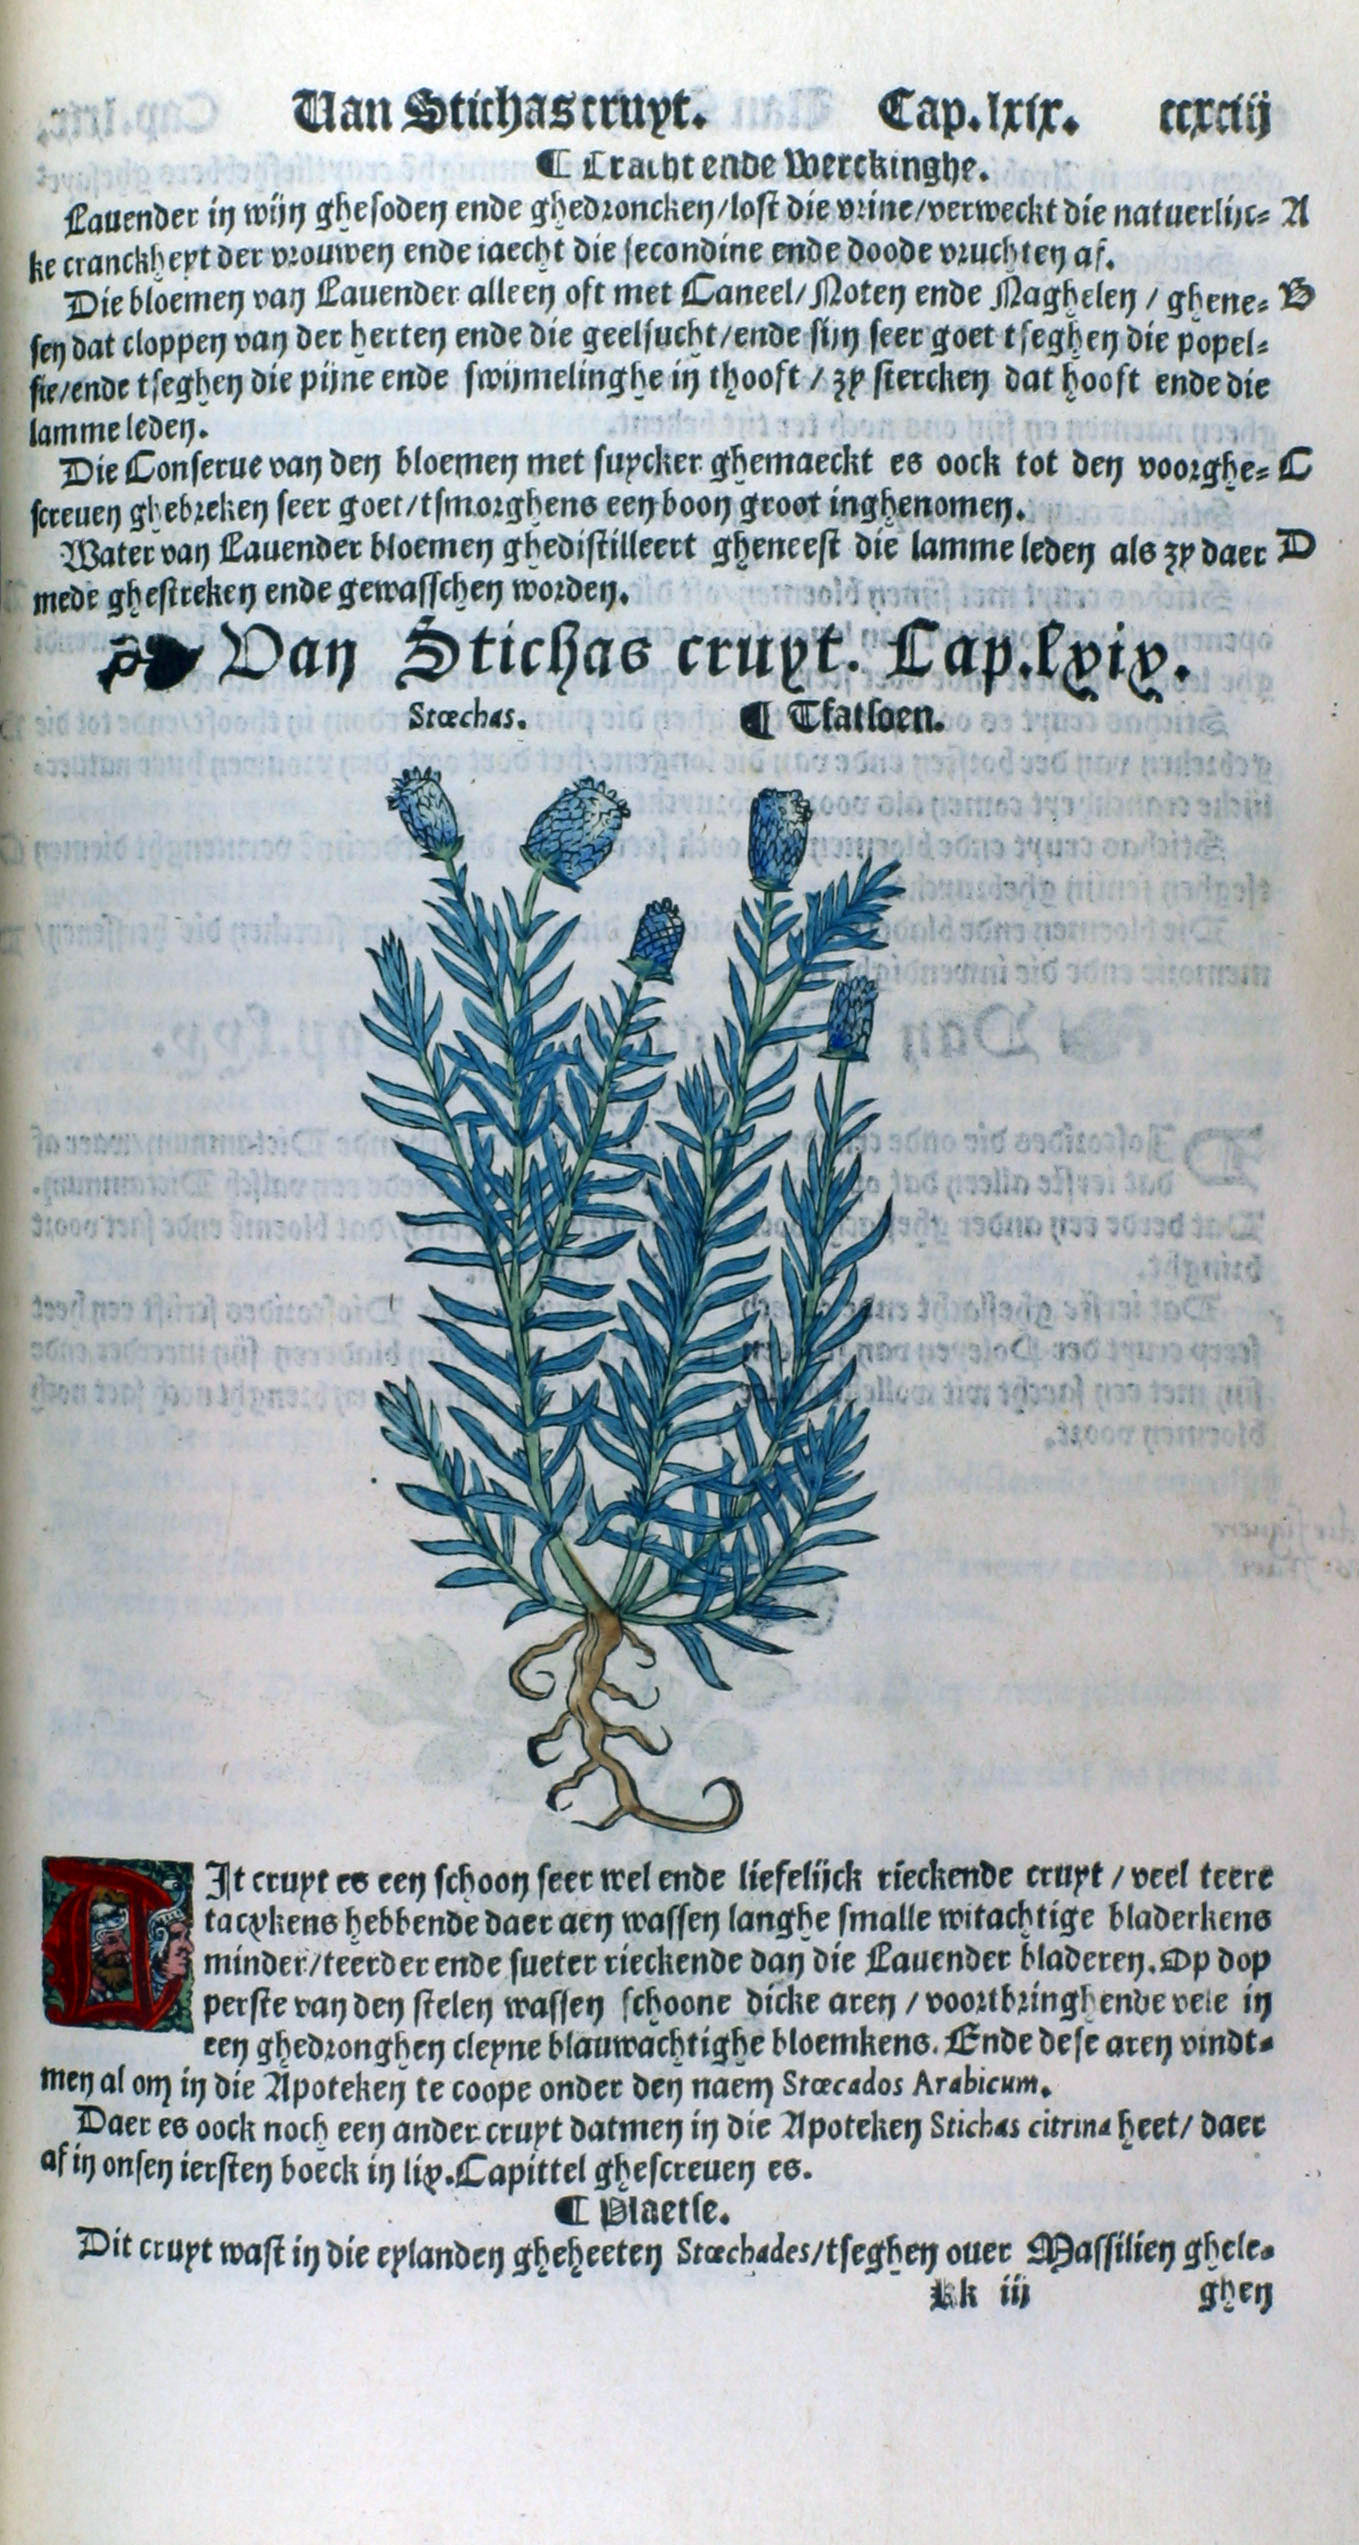 Van Stichas cruyt. Cap. lxix. ccxciij
¶ Cracht ende Werckinghe.
Lauender in wijn ghesoden ende ghedroncken/lost die vrine/verweckt die natuerlijc= A
ke cranckheyt der vrouwen ende iaecht die secondine ende doode vruchten af.
Die bloemen van Lauender alleen oft met Caneel/Noten ende Naghelen / ghene= B
sen dat cloppen van der herten ende die geelsucht/ende sijn seer goet tseghen die popel=
sie/ende tseghen die pijne ende swijmelinghe in thooft / zy stercken dat hooft ende die
lamme leden.
Die Conserue van den bloemen met suycker ghemaeckt es oock tot den voorghe= C
screuen ghebreken seer goet/tsmorghens een boon groot inghenomen.
Water van Lauender bloemen ghedistilleert gheneest die lamme leden als zy daer D
mede ghestreken ende gewasschen worden.
Van Stichas cruyt. Cap. lxix.
Stœchas. ¶ Tfatsoen.
DIt cruyt es een schoon seer wel ende liefelijck rieckende cruyt / veel teere
tacxkens hebbende daer aen wassen langhe smalle witachtige bladerkens
minder/teerder ende sueter rieckende dan die Lauender bladeren. Op dop
perste van den stelen wassen schoone dicke aren / voortbringhende vele in
een ghedronghen cleyne blauwachtighe bloemkens. Ende dese aren vindt=
men al om in die Apoteken te coope onder den naem Stœcados Arabicum.
Daer es oock noch een ander cruyt datmen in die Apoteken Stichas citrina heet/ daer
af in onsen iersten boeck in lix. Capittel ghescreuen es.
¶ Plaetse.
Dit cruyt wast in die eylanden gheheeten Stœchades/tseghen ouer Massilien ghele=
Kk iij ghen